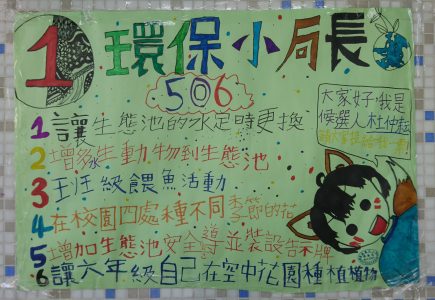 1 環保小局長
506
大家好,我是
候選人杜仲軒
1 讓生態池的水定時更換
2 增發水生動物到生態池
3 班級餵魚活動
4 在校園四處種不同季節的花
5 增加生態池安全導並裝設告示牌
6 讓六年級自己在空中花園種植植物